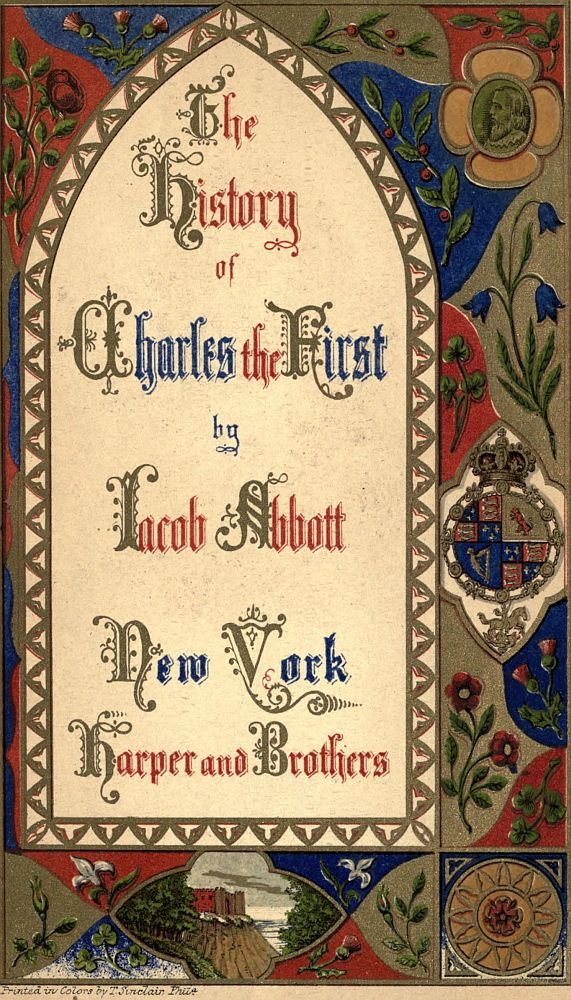 The
History
of
Charles the First
by
Jacob Abbott
New York
Harper and Brothers
Printed in Colors by T. Sinclair, Phila